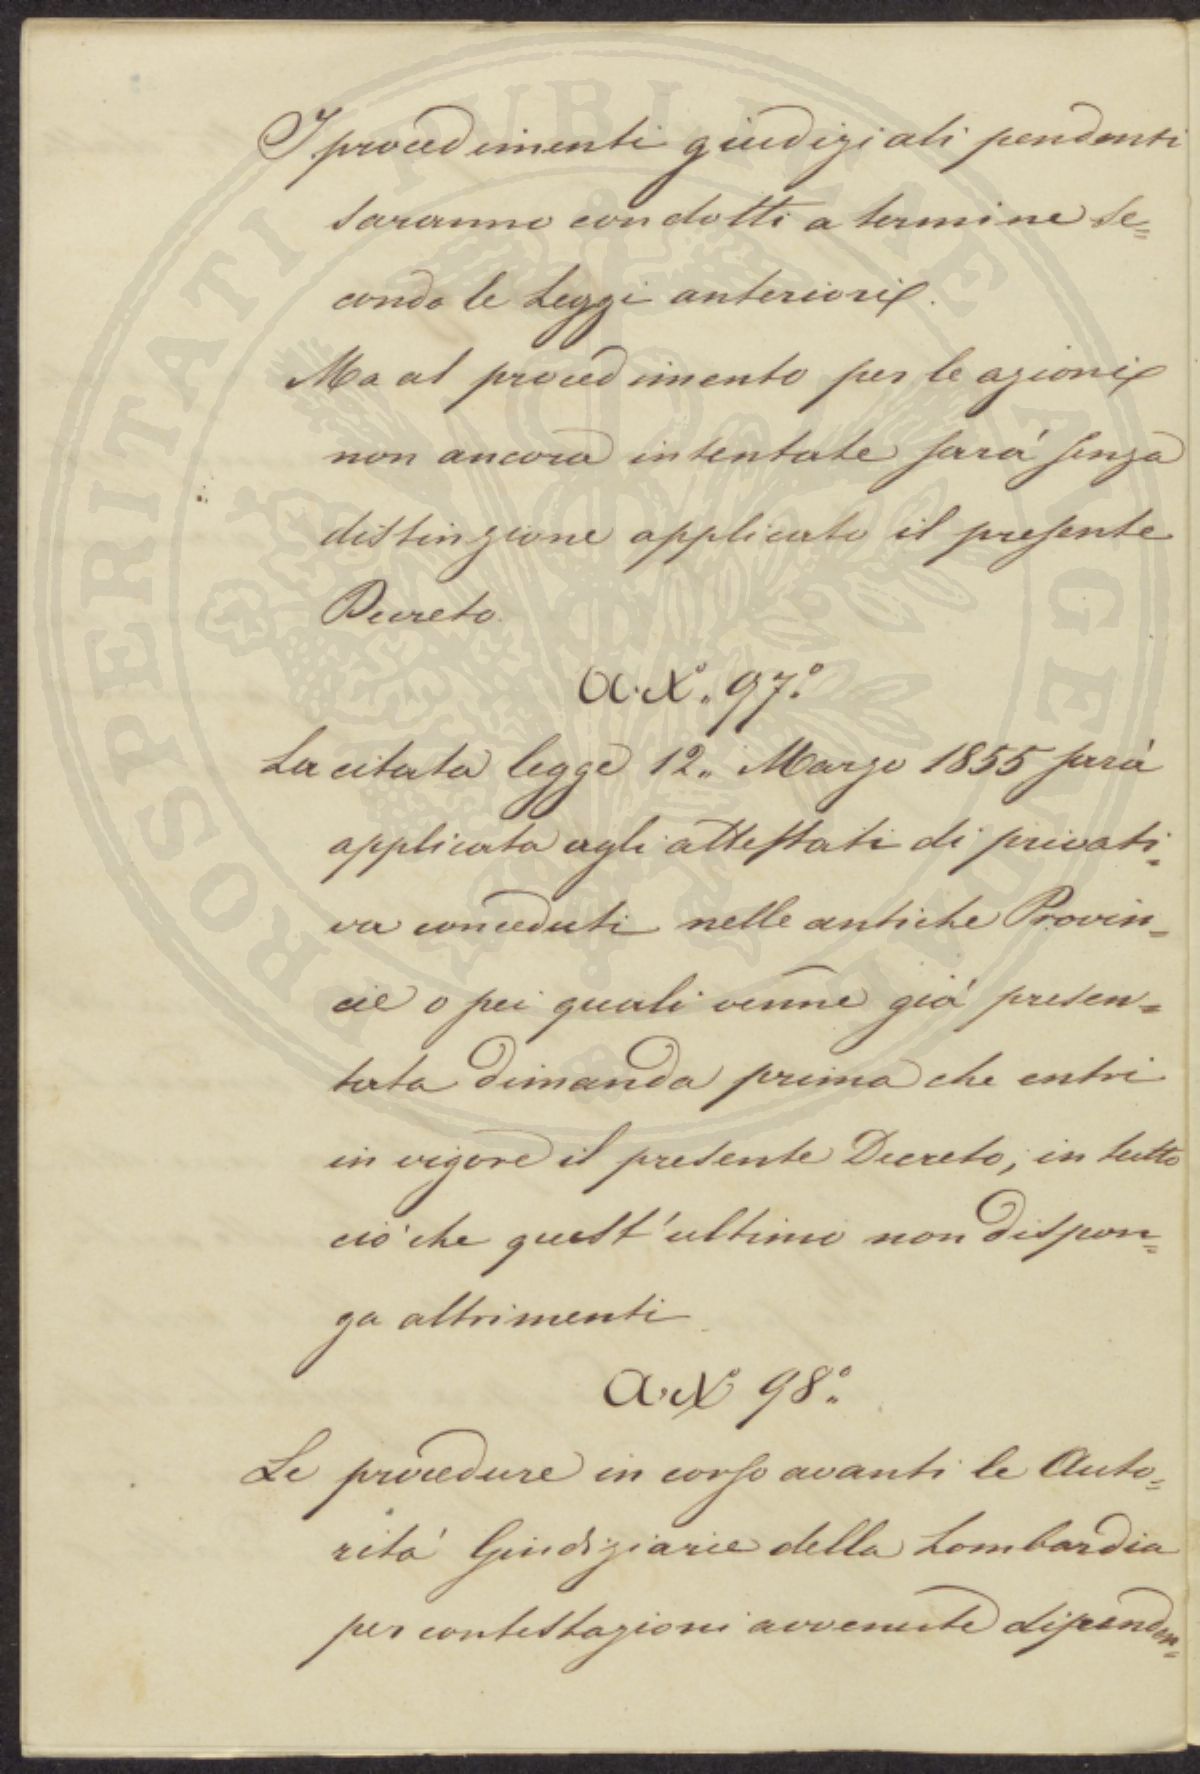 I procedimenti giudiziali pendenti
saranno condotti a termine se=
condo le Leggi anteriori.
Ma al procedimento per le azioni
non ancora intentate sarà senza
distinzione applicato il presente
Decreto.
97.°
La citata legge 12. Marzo 1855 sarà
applicata agli attestati di privati=
va conceduti nelle antiche Provin=
cie o pei quali venne già presen=
tata dimanda prima che entri
in vigore il presente Decreto, in tutto
ciò che quest'ultimo non dispon=
ga altrimenti
98.°
Le procedure in corso avanti le Auto=
rità Giudiziarie della Lombardia
per contestazioni avvenute dipenden=
PUBLICAE
PROSPERITATI